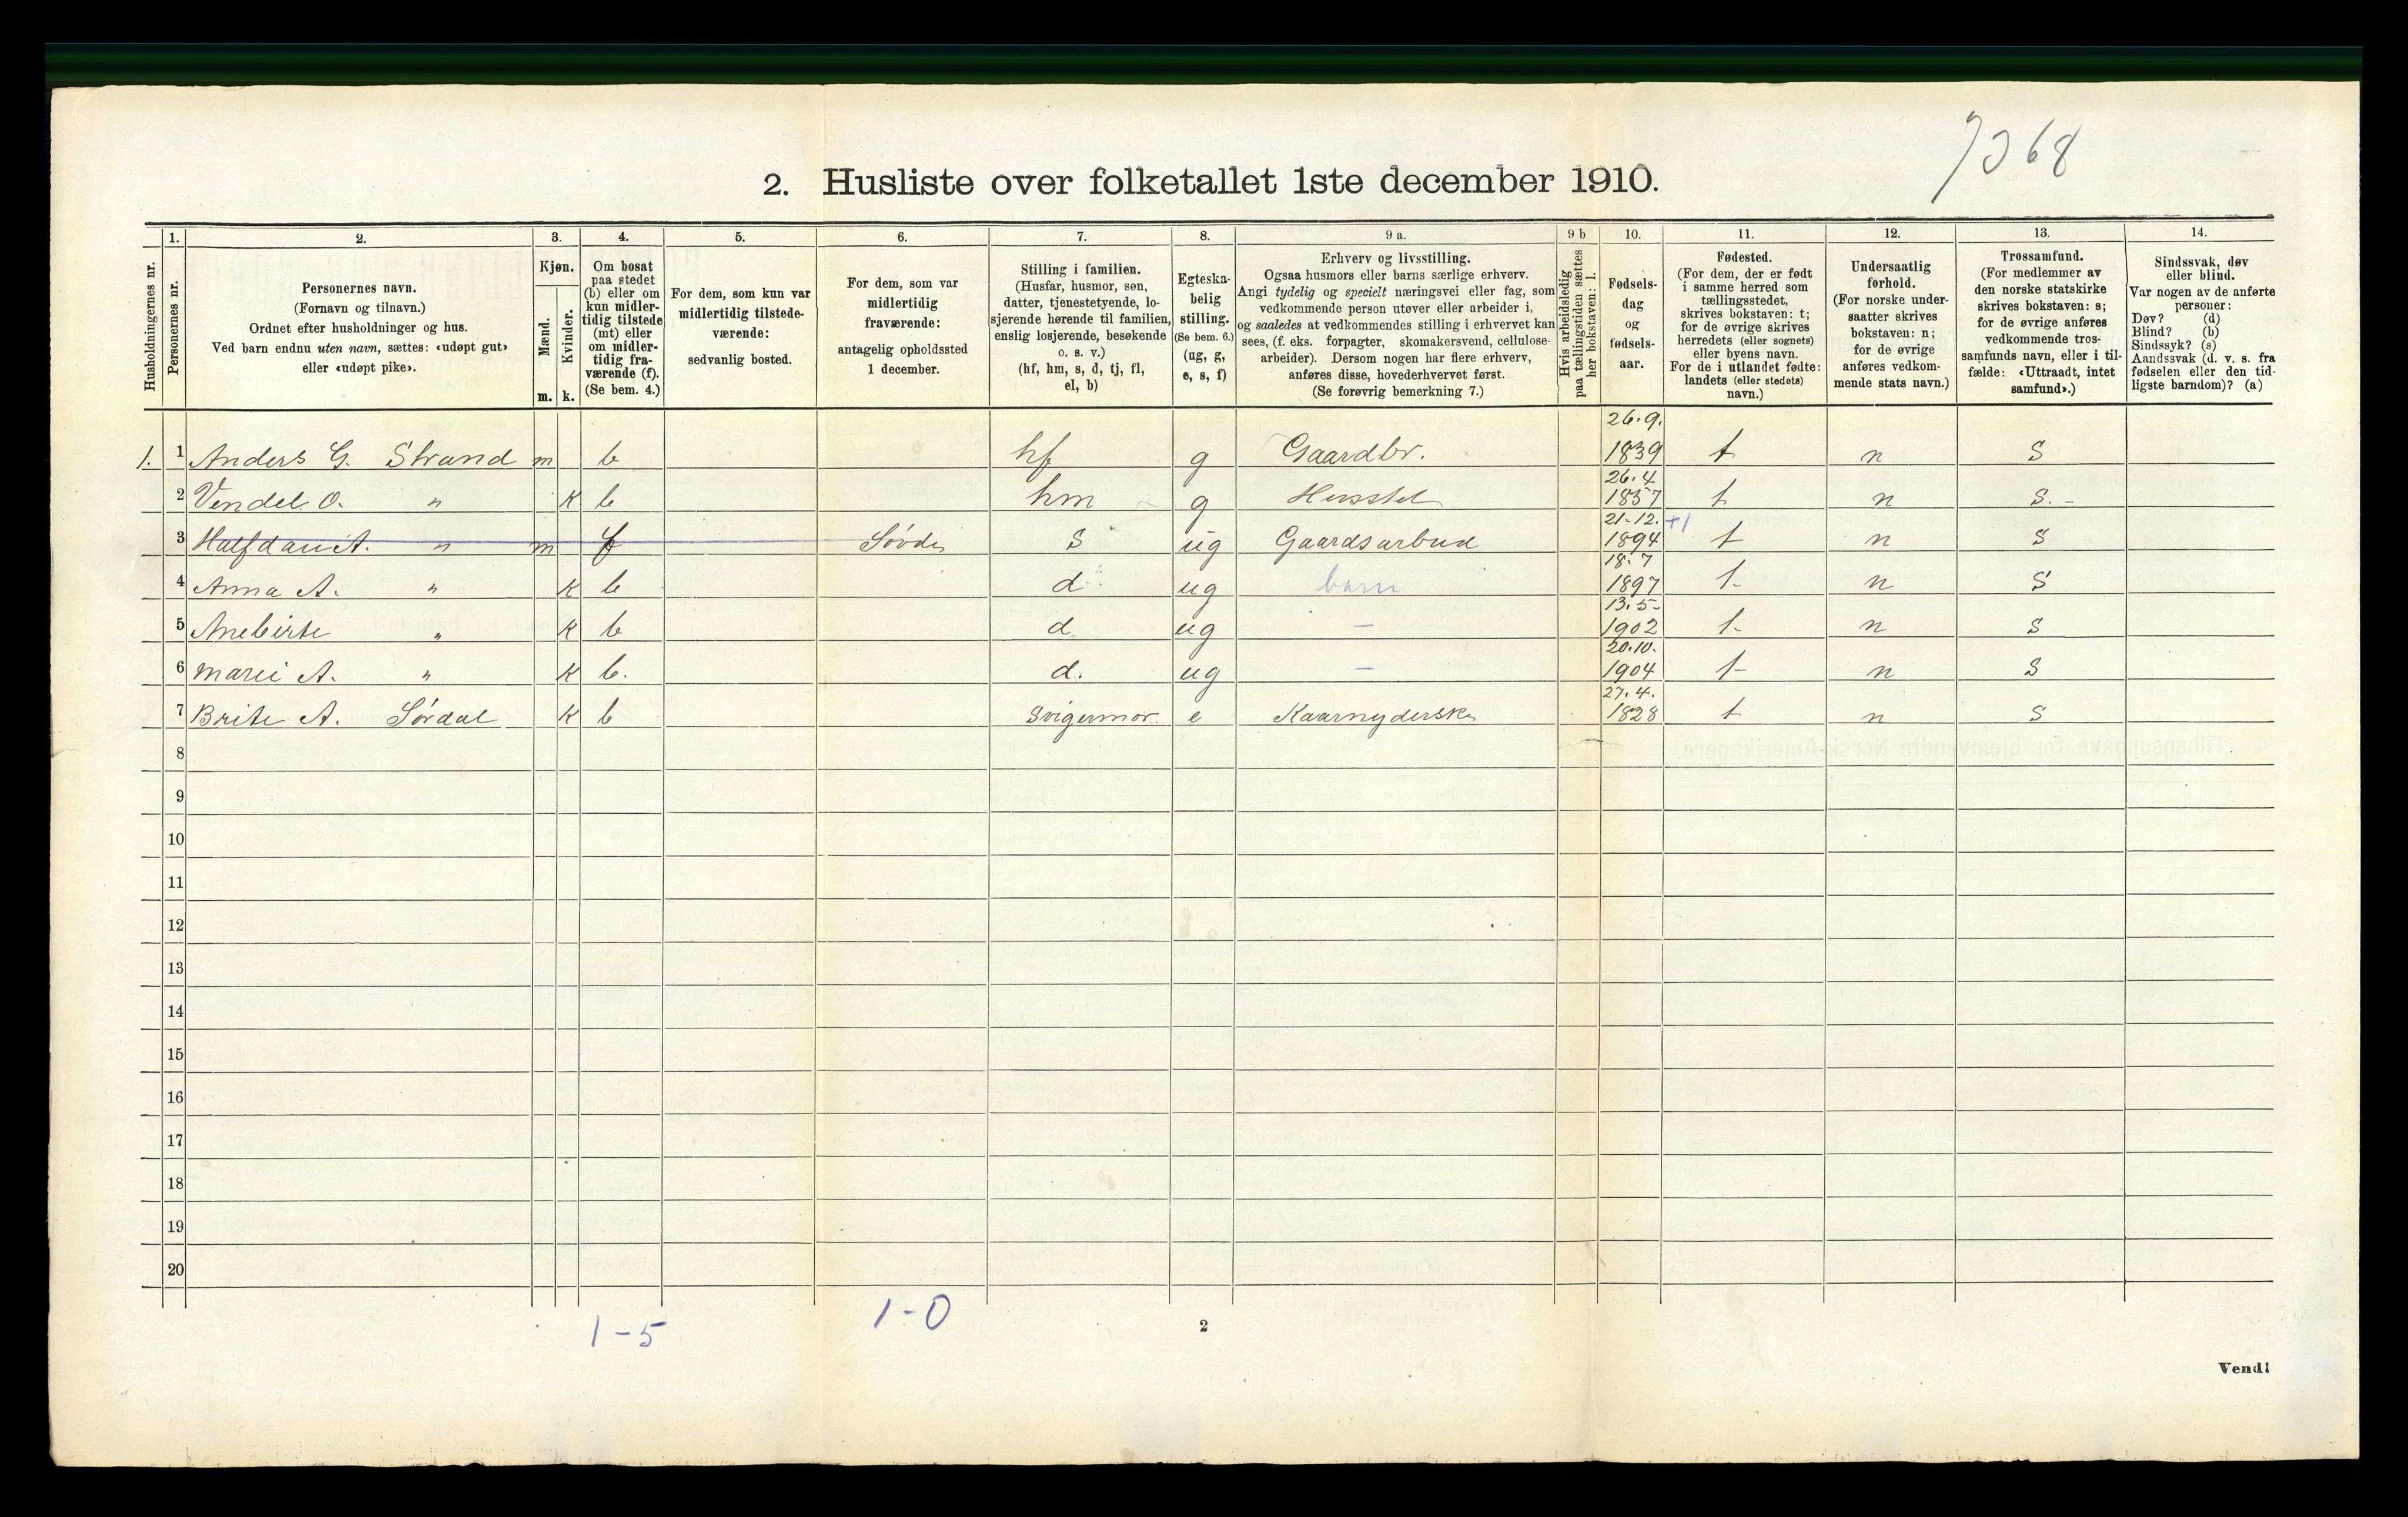 7368
2. Husliste over folketallet 1ste december 1910.
Husholdningernes nr.
1. Personernes nr.
2. Personernes navn.
(Fornavn og tilnavn.)
Ordnet efter husholdninger og hus.
Ved barn endnu uten navn, sættes: «udøpt gut»
eller «udøpt pike».
3. Kjøn.
Mænd. m.
Kvinder. k.
4. Om bosat
paa stedet
(b) eller om
kun midler-
tidig tilstede
(mt) eller
om midler-
tidig fra-
værende (f).
(Se bem. 4.)
5. For dem, som kun var
midlertidig tilstede-
værende:
sedvanlig bosted.
6. For dem, som var
midlertidig
fraværende:
antagelig opholdssted
1 december.
7. Stilling i familien.
(Husfar, husmor, søn,
datter, tjenestetyende, lo-
sjerende hørende til familien,
enslig losjerende, besøkende
o. s. v.)
(hf, hm, s, d, tj, fl,
el, b)
8. Egteska-
belig
stilling.
(Se bem. 6.)
(ug, g,
e, s, f)
9 a. Erhverv og livsstilling.
Ogsaa husmors eller barns særlige erhverv.
Angi tydelig og specielt næringsvei eller fag, som
vedkommende person utøver eller arbeider i,
og saaledes at vedkommendes stilling i erhvervet kan
sees, (f. eks. forpagter, skomakersvend, cellulose-
arbeider). Dersom nogen har flere erhverv,
anføres disse, hovederhvervet først.
(Se forøvrig bemerkning 7.)
9 b Hvis arbeidsledig
paa tællingstiden sættes
her bokstaven: l.
10. Fødsels-
dag
og
fødsels-
aar.
11. Fødested.
(For dem, der er født
i samme herred som
tællingsstedet,
skrives bokstaven: t;
for de øvrige skrives
herredets (eller sognets)
eller byens navn.
For de i utlandet fødte:
landets (eller stedets)
navn.)
12. Undersaatlig
forhold.
(For norske under-
saatter skrives
bokstaven: n;
for de øvrige
anføres vedkom-
mende stats navn.)
13. Trossamfund.
(For medlemmer av
den norske statskirke
skrives bokstaven: s;
for de øvrige anføres
vedkommende tros-
samfunds navn, eller i til-
fælde: «Uttraadt, intet
samfund».)
14. Sindssvak, døv
eller blind.
Var nogen av de anførte
personer:
Døv? (d)
Blind? (b)
Sindssyk? (s)
Aandssvak (d. v. s. fra
fødselen eller den tid-
ligste barndom)? (a)
1. 1 Anders G. Strand m b hf g Gaardbr. 26.9. 1839 t n S
2 Vendel O. " k b hm g Husstel 26.4 1857 t n S.-
3 Halfdan A. " m f Søvde S ug Gaardsarbud 21-12. +1 1894 t n S
4 Anna A. " k b d. ug barn 18.7 1897 t n S
5 Anebirte " k b d. ug — 13.5- 1902 t n S
6 Marei A. " k b. d. ug — 20.10. 1904 t n S
7 Brite A. Sørdal k b Svigermor. e Kaarnyderske 27.4. 1828 t n S
8
9
10
11
12
13
14
15
16
17
18
19
20
1-5
1-0
2
Vend!